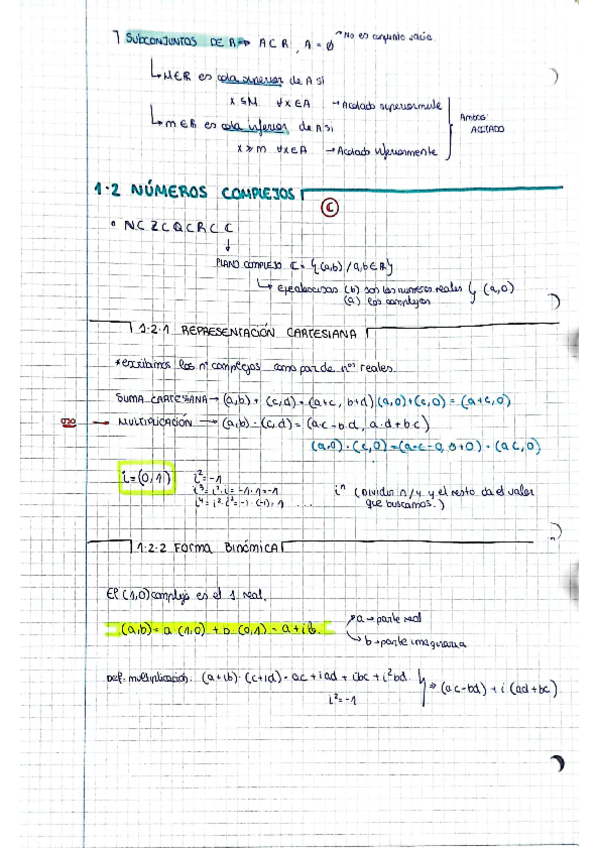 SUBCONJUNTOS DE R → A ⊂ R, A = ∅ → No es conjunto vacío.
M∈R es cota superior de A si
x ≤ M ∀x∈A → Acotado superiormente
m∈R es cota inferior de A si
x ≥ m ∀x∈A → Acotado inferiormente
Ambos: ACOTADO
1.2 NÚMEROS COMPLEJOS
C
N ⊂ Z ⊂ Q ⊂ R ⊂ C
PLANO COMPLEJO C = {(a,b) / a,b ∈ R}
(b) son los números reales (a,0)
(a) los complejos
1.2.1 REPRESENTACIÓN CARTESIANA
*escribimos los nº complejos como par de nos reales.
SUMA CARTESIANA → (a,b) + (c,d) = (a+c, b+d) (a,0)+(c,0) = (a+c,0)
OJO → MULTIPLICACIÓN → (a,b)·(c,d) = (a·c-b·d, a·d+b·c)
(a,0)·(c,0) = (a·c-0, 0+0) = (ac,0)
i=(0,1) i²=-1
i³=i²·i=-1·1=-1
i⁴=i²·i²=-1·(-1)=1 ...
iⁿ (Dividir n/4 y el resto da el valor
que buscamos.)
1.2.2 FORMA BINÓMICA
El (1,0) complejo es el 1 real.
(a,b) = a·(1,0) + b·(0,1) = a+ib.
a → parte real
b → parte imaginaria
Def. multiplicación: (a+ib)·(c+id) = ac+iad+ibc+i²bd } ⇒ (ac-bd) + i(ad+bc)
i²=-1